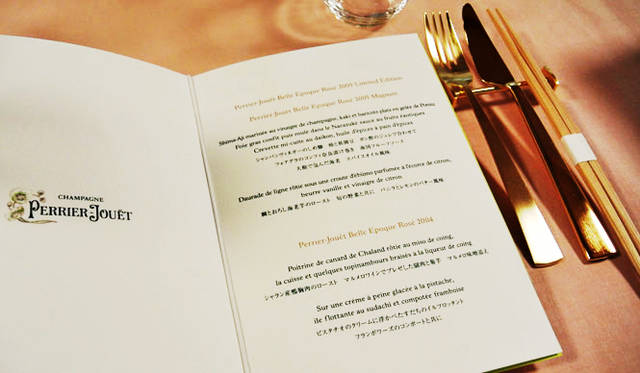 CHAMPAGNE
PERRIER-JOUËT
Perrier-Jouët Belle Epoque Rosé 2005 Limited Edition
Perrier-Jouët Belle Epoque 2005 Magnum
Shima-Aji marinée au vinaigre de champagne, kaki et haricots plats en gelée de Ponzu
Foie gras confit puis roulé dans le Narazuke sauce au fruits exotiques
Crevette mi-cuite au daikon, huile d'épices à pain d'épices
Daurade de ligne rôtie sous une croute d'ébimo parfumée à l'écorce de citron,
beurre vanille et vinaigre de citron
鯛とおろし海老芋のロースト 旬の野菜と共に バニラとレモンのバター風味
Perrier-Jouët Belle Epoque Rosé 2004
Poitrine de canard de Chaland rôtie au miso de coing,
la cuisse et quelques topinambours braisés à la liqueur de coing
シャラン産鴨胸肉のロースト マルメロワインでブレゼした腿肉と菊芋 マルメロ味噌添え
Sur une crème à peine glacée à la pistache,
île flottante au sudachi et compotée framboise
ピスタチオのクリームに浮かべたすだちのイルフロッタント
フランボワーズのコンポートと共に